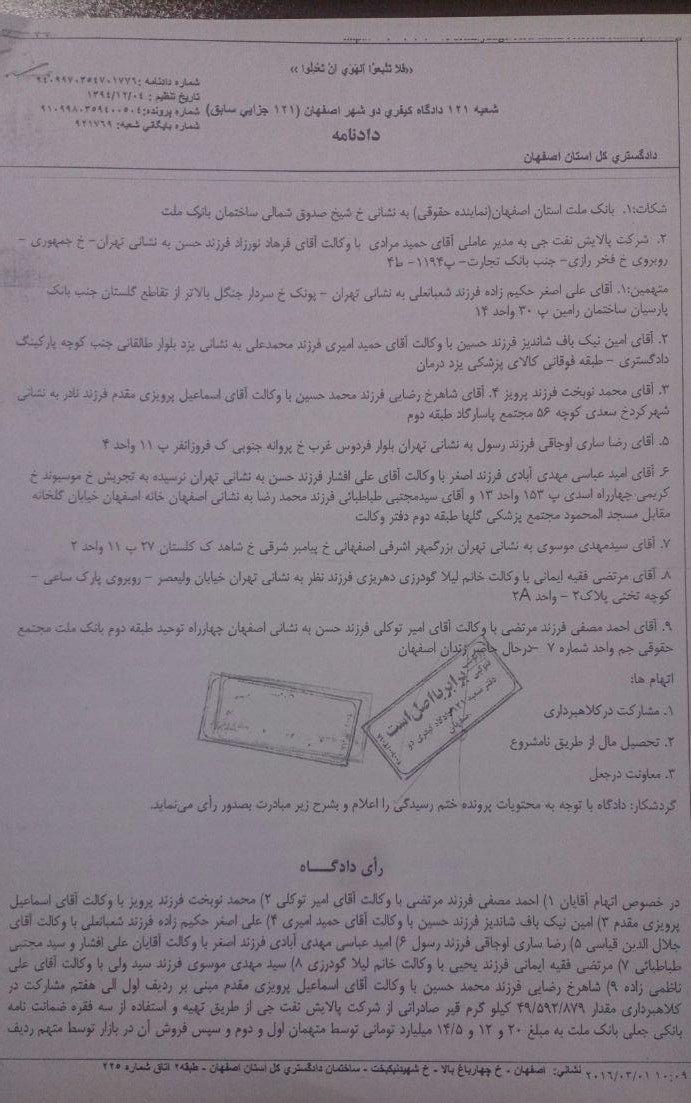 «فلا تتبعوا الهوي ان تعدلوا»
شماره دادنامه: ۹۴۰۹۹۷۰۳۵۴۷۰۱۷۷۶
تاریخ تنظیم: ۱۳۹۴/۱۲/۰۴
شعبه ۱۲۱ دادگاه کیفری دو شهر اصفهان (۱۲۱ جزایی سابق)
شماره پرونده: ۹۱۰۹۹۸۰۳۵۹۴۰۰۵۰۴
شماره بایگانی شعبه: ۹۲۱۷۶۹
دادنامه
دادگستری کل استان اصفهان
شکات:۱. بانک ملت استان اصفهان(نماینده حقوقی) به نشانی خ شیخ صدوق شمالی ساختمان بانک ملت
۲. شرکت پالایش نفت جی به مدیر عاملی آقای حمید مرادی با وکالت آقای فرهاد نورزاد فرزند حسن به نشانی تهران- خ جمهوری –
روبروی خ فخر رازی- جنب بانک تجارت- پ۱۱۹۴- ط۴
متهمین:۱. آقای علی اصغر حکیم زاده فرزند شعبانعلی به نشانی تهران – پونک خ سردار جنگل بالاتر از تقاطع گلستان جنب بانک
پارسیان ساختمان رامین پ ۳۰ واحد ۱۴
۲. آقای امین نیک باف شاندیز فرزند حسین با وکالت آقای حمید امیری فرزند محمدعلی به نشانی یزد بلوار طالقانی جنب کوچه پارکینگ
دادگستری – طبقه فوقانی کالای پزشکی یزد درمان
۳. آقای محمد نوبخت فرزند پرویز ۴. آقای شاهرخ رضایی فرزند محمد حسین با وکالت آقای اسماعیل پرویزی مقدم فرزند نادر به نشانی
شهرکردخ سعدی کوچه ۵۶ مجتمع پاسارگاد طبقه دوم
۵. آقای رضا ساری اوجاقی فرزند رسول به نشانی تهران بلوار فردوس غرب خ پروانه جنوبی ک فروزانفر پ ۱۱ واحد ۴
۶. آقای امید عباسی مهدی آبادی فرزند اصغر با وکالت آقای علی افشار فرزند حسن به نشانی تهران نرسیده به تجریش خ موسیوند خ
کریمی چهارراه اسدی پ ۱۵۳ واحد ۱۳ و آقای سیدمجتبی طباطبائی فرزند محمد رضا به نشانی اصفهان خانه اصفهان خیابان گلخانه
مقابل مسجد المحمود مجتمع پزشکی گلها طبقه دوم دفتر وکالت
۷. آقای سیدمهدی موسوی به نشانی تهران بزرگمهر اشرفی اصفهانی خ پیامبر شرقی خ شاهد ک گلستان ۲۷ پ ۱۱ واحد ۲
۸. آقای مرتضی فقیه ایمانی با وکالت خانم لیلا گودرزی دهریزی فرزند نظر به نشانی تهران خیابان ولیعصر – روبروی پارک ساعی –
کوچه تختی پلاک۲ – واحد ۲A
۹. آقای احمد مصفی فرزند مرتضی با وکالت آقای امیر توکلی فرزند حسن به نشانی اصفهان چهارراه توحید طبقه دوم بانک ملت مجتمع
حقوقی جم واحد شماره ۷ –درحال حاضر زندان اصفهان
اتهام ها:
برابر با اصل است
۱. مشارکت در کلاهبرداری
۲. تحصیل مال از طریق نامشروع
۳. معاونت درجعل
گردشکار: دادگاه با توجه به محتویات پرونده ختم رسیدگی را اعلام و بشرح زیر مبادرت بصدور رأی می‌نماید.
رأی دادگـــاه
در خصوص اتهام آقایان ۱) احمد مصفی فرزند مرتضی با وکالت آقای امیر توکلی ۲) محمد نوبخت فرزند پرویز با وکالت آقای اسماعیل
پرویزی مقدم ۳) امین نیک باف شاندیز فرزند حسین با وکالت آقای حمید امیری ۴) علی اصغر حکیم زاده فرزند شعبانعلی با وکالت آقای
جلال الدین قیاسی ۵) رضا ساری اوجاقی فرزند رسول ۶) امید عباسی مهدی آبادی فرزند اصغر با وکالت آقایان علی افشار و سید مجتبی
طباطبائی ۷) مرتضی فقیه ایمانی فرزند یحیی با وکالت خانم لیلا گودرزی ۸) سید مهدی موسوی فرزند سید ولی با وکالت آقای علی
ناظمی زاده ۹) شاهرخ رضایی فرزند محمد حسین با وکالت آقای اسماعیل پرویزی مقدم مبنی بر ردیف اول الی هفتم مشارکت در
کلاهبرداری مقدار ۴۹/۵۹۲/۸۷۹ کیلو گرم قیر صادراتی از شرکت پالایش نفت جی از طریق تهیه و استفاده از سه فقره ضمانت نامه
بانکی جعلی بانک ملت به مبلغ ۲۰ و ۱۲ و ۱۴/۵ میلیارد تومانی توسط متهمان اول و دوم و سپس فروش آن در بازار توسط متهم ردیف
نشانی: اصفهان - خ چهارباغ بالا - خ شهیدنیکبخت - ساختمان دادگستری کل استان اصفهان - طبقه۲ اتاق شماره ۲۲۵
۲۰۱۶/۰۳/۰۱ ۱۰:۰۹